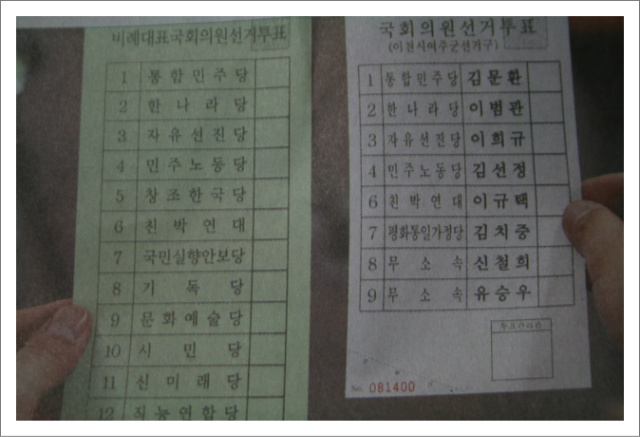 비례대표국회의원선거투표
1 통합민주당
2 한나라당
3 자유선진당
4 민주노동당
5 창조한국당
6 친박연대
7 국민실향안보당
8 기독당
9 문화예술당
10 시민당
11 신미래당
12 직능연합당
국회의원선거투표
(이천시여주군선거구)
1 통합민주당 김문환
2 한나라당 이범관
3 자유선진당 이희규
4 민주노동당 김선정
6 친박연대 이규택
7 평화통일가정당 김치중
8 무소속 신철희
9 무소속 유승우
투표관리관
No. 081400